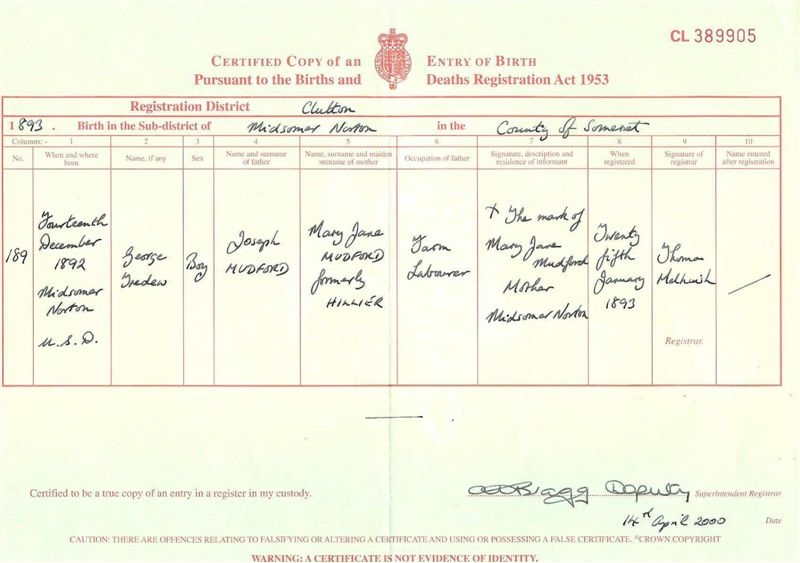 CL 389905
CERTIFIED COPY OF AN ENTRY OF BIRTH
Pursuant to the Births and Deaths Registration Act 1953
Registration District Clutton
1893. Birth in the Sub-district of Midsomer Norton in the County of Somerset
Columns:- 1 2 3 4 5 6 7 8 9 10
No. When and where born Name, if any Sex Name and surname of father Name, surname and maiden surname of mother Occupation of father Signature, description and residence of informant When registered Signature of registrar Name entered after registration
189
Fourteenth
December
1892
Midsomer
Norton
U.S.D.
George
Boy
Joseph
MUDFORD
Mary Jane
MUDFORD
formerly
HILLIER
Farm
Labourer
X The mark of
Mary Jane
Mudford
Mother
Midsomer Norton
Twenty
fifth
January
1893
Thomas
Melhuish
Registrar.
Certified to be a true copy of an entry in a register in my custody.
Bragg Deputy Superintendent Registrar
14th April 2000 Date
CAUTION: THERE ARE OFFENCES RELATING TO FALSIFYING OR ALTERING A CERTIFICATE AND USING OR POSSESSING A FALSE CERTIFICATE. ©CROWN COPYRIGHT
WARNING: A CERTIFICATE IS NOT EVIDENCE OF IDENTITY.